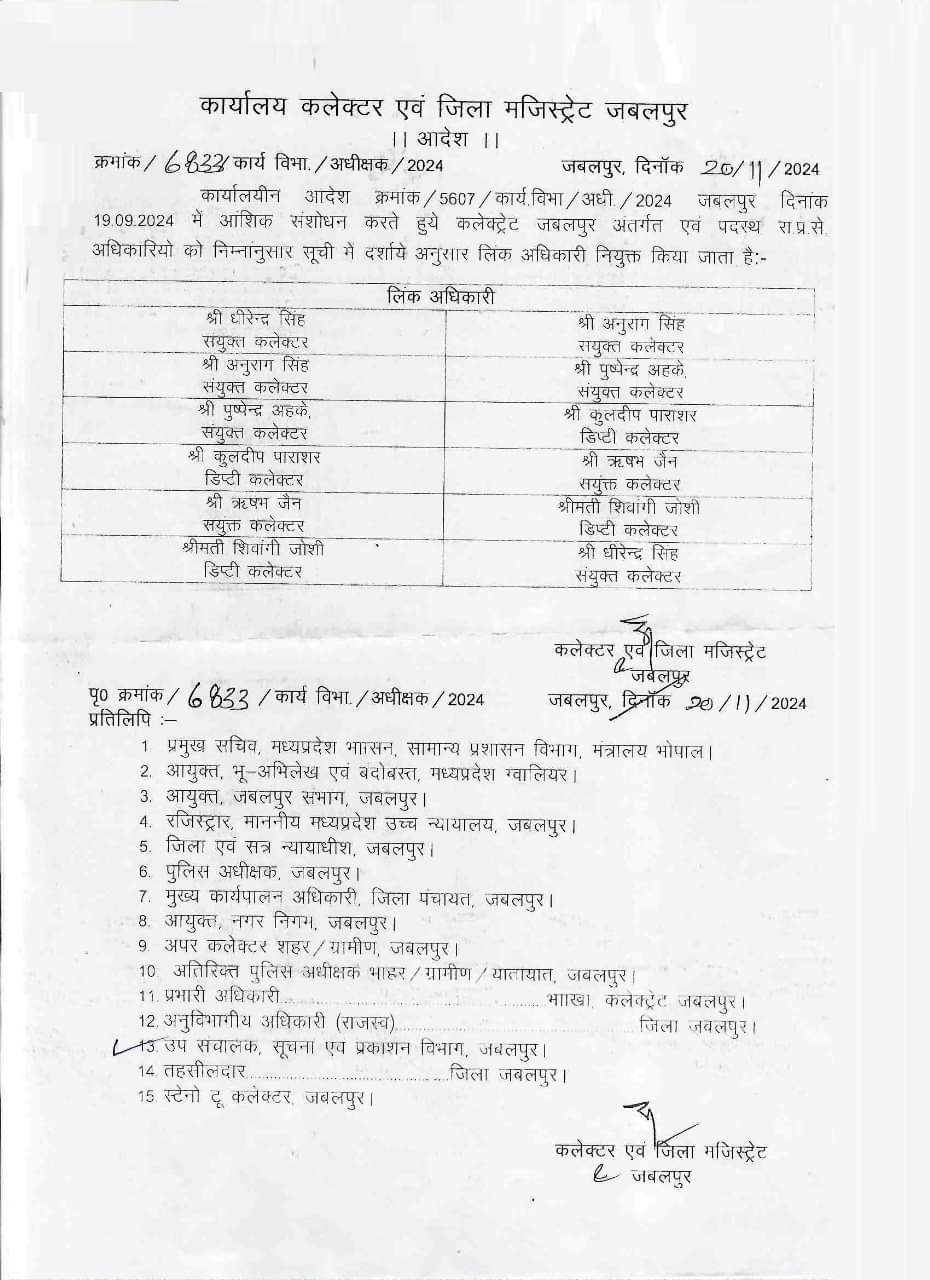 कार्यालय कलेक्टर एवं जिला मजिस्ट्रेट जबलपुर
।। आदेश ।।
क्रमांक/6833/कार्य विभा./अधीक्षक/2024 जबलपुर, दिनॉक 20/11/2024
कार्यालयीन आदेश क्रमांक/5607/कार्य.विभा/अधी./2024 जबलपुर दिनांक
19.09.2024 में आंशिक संशोधन करते हुये कलेक्ट्रेट जबलपुर अंतर्गत एवं पदस्थ रा.प्र.से.
अधिकारियो को निम्नानुसार सूची में दर्शाये अनुसार लिंक अधिकारी नियुक्त किया जाता है:-
लिंक अधिकारी
श्री धीरेन्द्र सिंह श्री अनुराग सिंह
संयुक्त कलेक्टर संयुक्त कलेक्टर
श्री अनुराग सिंह श्री पुष्पेन्द्र अहके,
संयुक्त कलेक्टर संयुक्त कलेक्टर
श्री पुष्पेन्द्र अहके, श्री कुलदीप पाराशर
संयुक्त कलेक्टर डिप्टी कलेक्टर
श्री कुलदीप पाराशर श्री ऋषभ जैन
डिप्टी कलेक्टर सयुंक्त कलेक्टर
श्री ऋषभ जैन श्रीमती शिवांगी जोशी
सयुंक्त कलेक्टर डिप्टी कलेक्टर
श्रीमती शिवांगी जोशी श्री धीरेन्द्र सिंह
डिप्टी कलेक्टर संयुक्त कलेक्टर
कलेक्टर एवं जिला मजिस्ट्रेट
जबलपुर
पृ0 क्रमांक/6833/कार्य विभा./अधीक्षक/2024 जबलपुर, दिनॉक 20/11/2024
प्रतिलिपि :–
1. प्रमुख सचिव, मध्यप्रदेश भाासन, सामान्य प्रशासन विभाग, मंत्रालय भोपाल।
2. आयुक्त, भू–अभिलेख एवं बंदोबस्त, मध्यप्रदेश ग्वालियर।
3. आयुक्त, जबलपुर संभाग, जबलपुर।
4. रजिस्ट्रार, माननीय मध्यप्रदेश उच्च न्यायालय, जबलपुर।
5. जिला एवं सत्र न्यायाधीश, जबलपुर।
6. पुलिस अधीक्षक, जबलपुर।
7. मुख्य कार्यपालन अधिकारी, जिला पंचायत, जबलपुर।
8. आयुक्त, नगर निगम, जबलपुर।
9. अपर कलेक्टर शहर/ग्रामीण, जबलपुर।
10. अतिरिक्त पुलिस अधीक्षक भाहर/ग्रामीण/यातायात, जबलपुर।
11. प्रभारी अधिकारी..................................................भााखा, कलेक्ट्रेट जबलपुर।
12. अनुविभागीय अधिकारी (राजस्व)..............................................जिला जबलपुर।
13. उप संचालक, सूचना एवं प्रकाशन विभाग, जबलपुर।
14. तहसीलदार.......................................जिला जबलपुर।
15. स्टेनो टू कलेक्टर, जबलपुर।
कलेक्टर एवं जिला मजिस्ट्रेट
जबलपुर